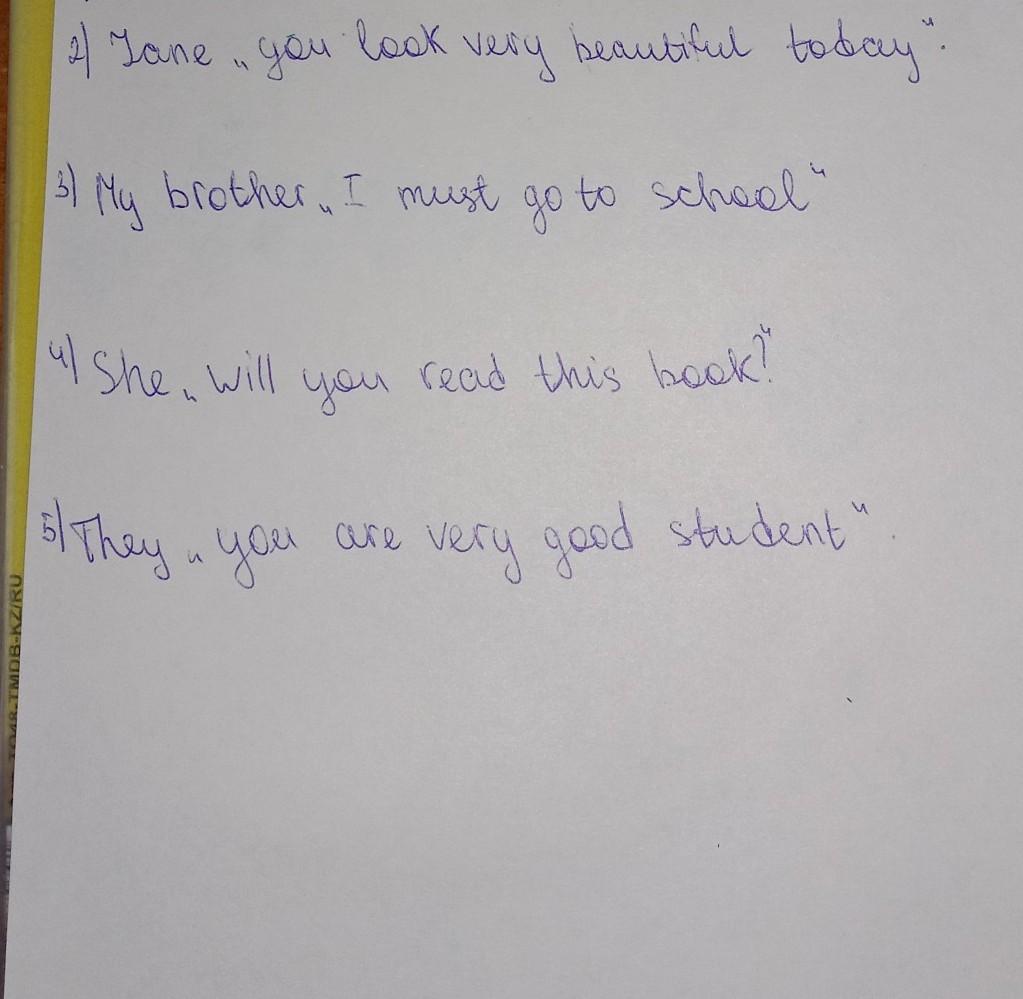 2) Jane „you look very beautiful today“.
3) My brother „I must go to school“
4) She „Will you read this book?“
5) They „you are very good student“.
TMDB-KZ/RU